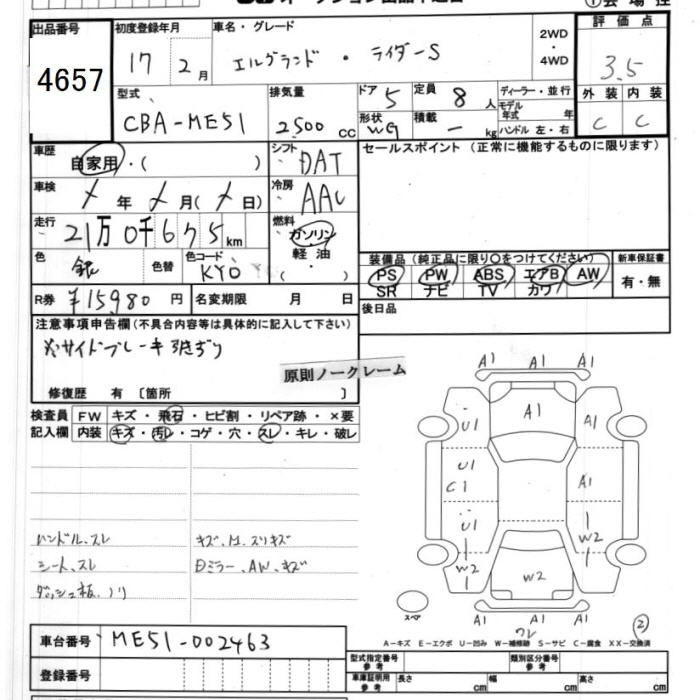 出品番号 4657
初度登録年月 17 2月
車名・グレード エルグランド ・ ライダーS
2WD・4WD
評価点 3.5
外装 C 内装 C
型式 CBA-ME51
排気量 2500 cc
ドア 5 定員 8 人
形状 WG 積載 ー kg
ディーラー・並行
モデル年式 年
ハンドル 左・右
車歴 自家用・( )
シフト DAT
セールスポイント(正常に機能するものに限ります)
車検 年 月(日)
冷房 AAC
走行 21万0千675km
燃料 ガソリン 軽油 ( ・ )
色 銀 色替 色コード KY0
装備品(純正品に限り○をつけてください) 新車保証書
PS PW ABS エアB AW 有・無
SR ナビ TV カワ
R券 ¥15,980円 名変期限 月 日
後日品
注意事項申告欄(不具合内容等は具体的に記入して下さい)
※サイドブレーキ引きずり
原則ノークレーム
修復歴 有 〔箇所 〕
検査員記入欄 FW キズ・飛石・ヒビ割・リペア跡・×要
内装 キズ・汚レ・コゲ・穴・スレ・キレ・破レ
ハンドル、スレ
シート、スレ
ダッシュ板、ノリ
キズ、M、スリキズ
Dミラー、AW、キズ
A1 A1 A1
A1
U1 A1
U1
C1 A1
U1
W2 W2
W2
A1 A1 A1
スペア
ワレ
②
A−キズ E−エクボ U−凹み W−補修跡 S−サビ C−腐食 XX−交換済
車台番号 ME51-002463
登録番号
型式指定番号 参考 類別区分番号 参考
車庫証明用参考 長さ cm 幅 cm 高さ cm